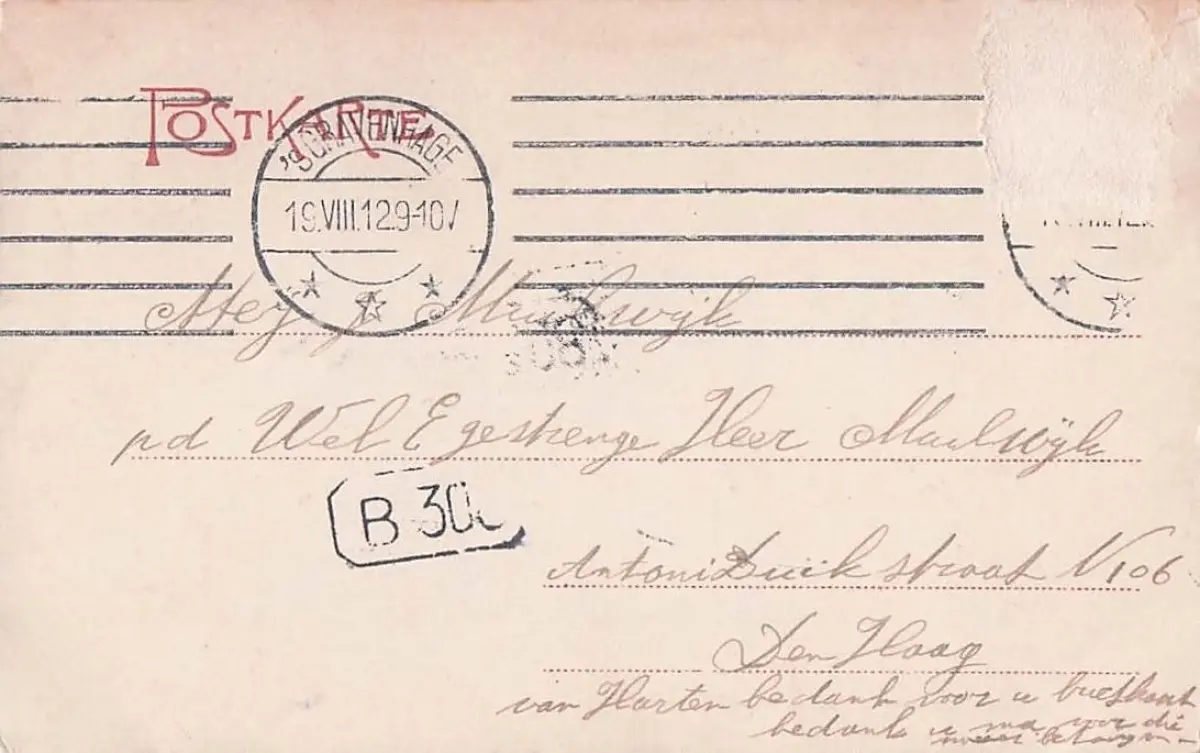 POSTKARTE
'SGRAVENHAGE
19.VIII.12.9-10V
Mej J Muulwijk
p/d Wel Egestrenge Heer Muulwijk
B 30
Antoni Duikstraat N 106
Den Haag
van Harten bedank voor u briefkaart
bedank u voor die